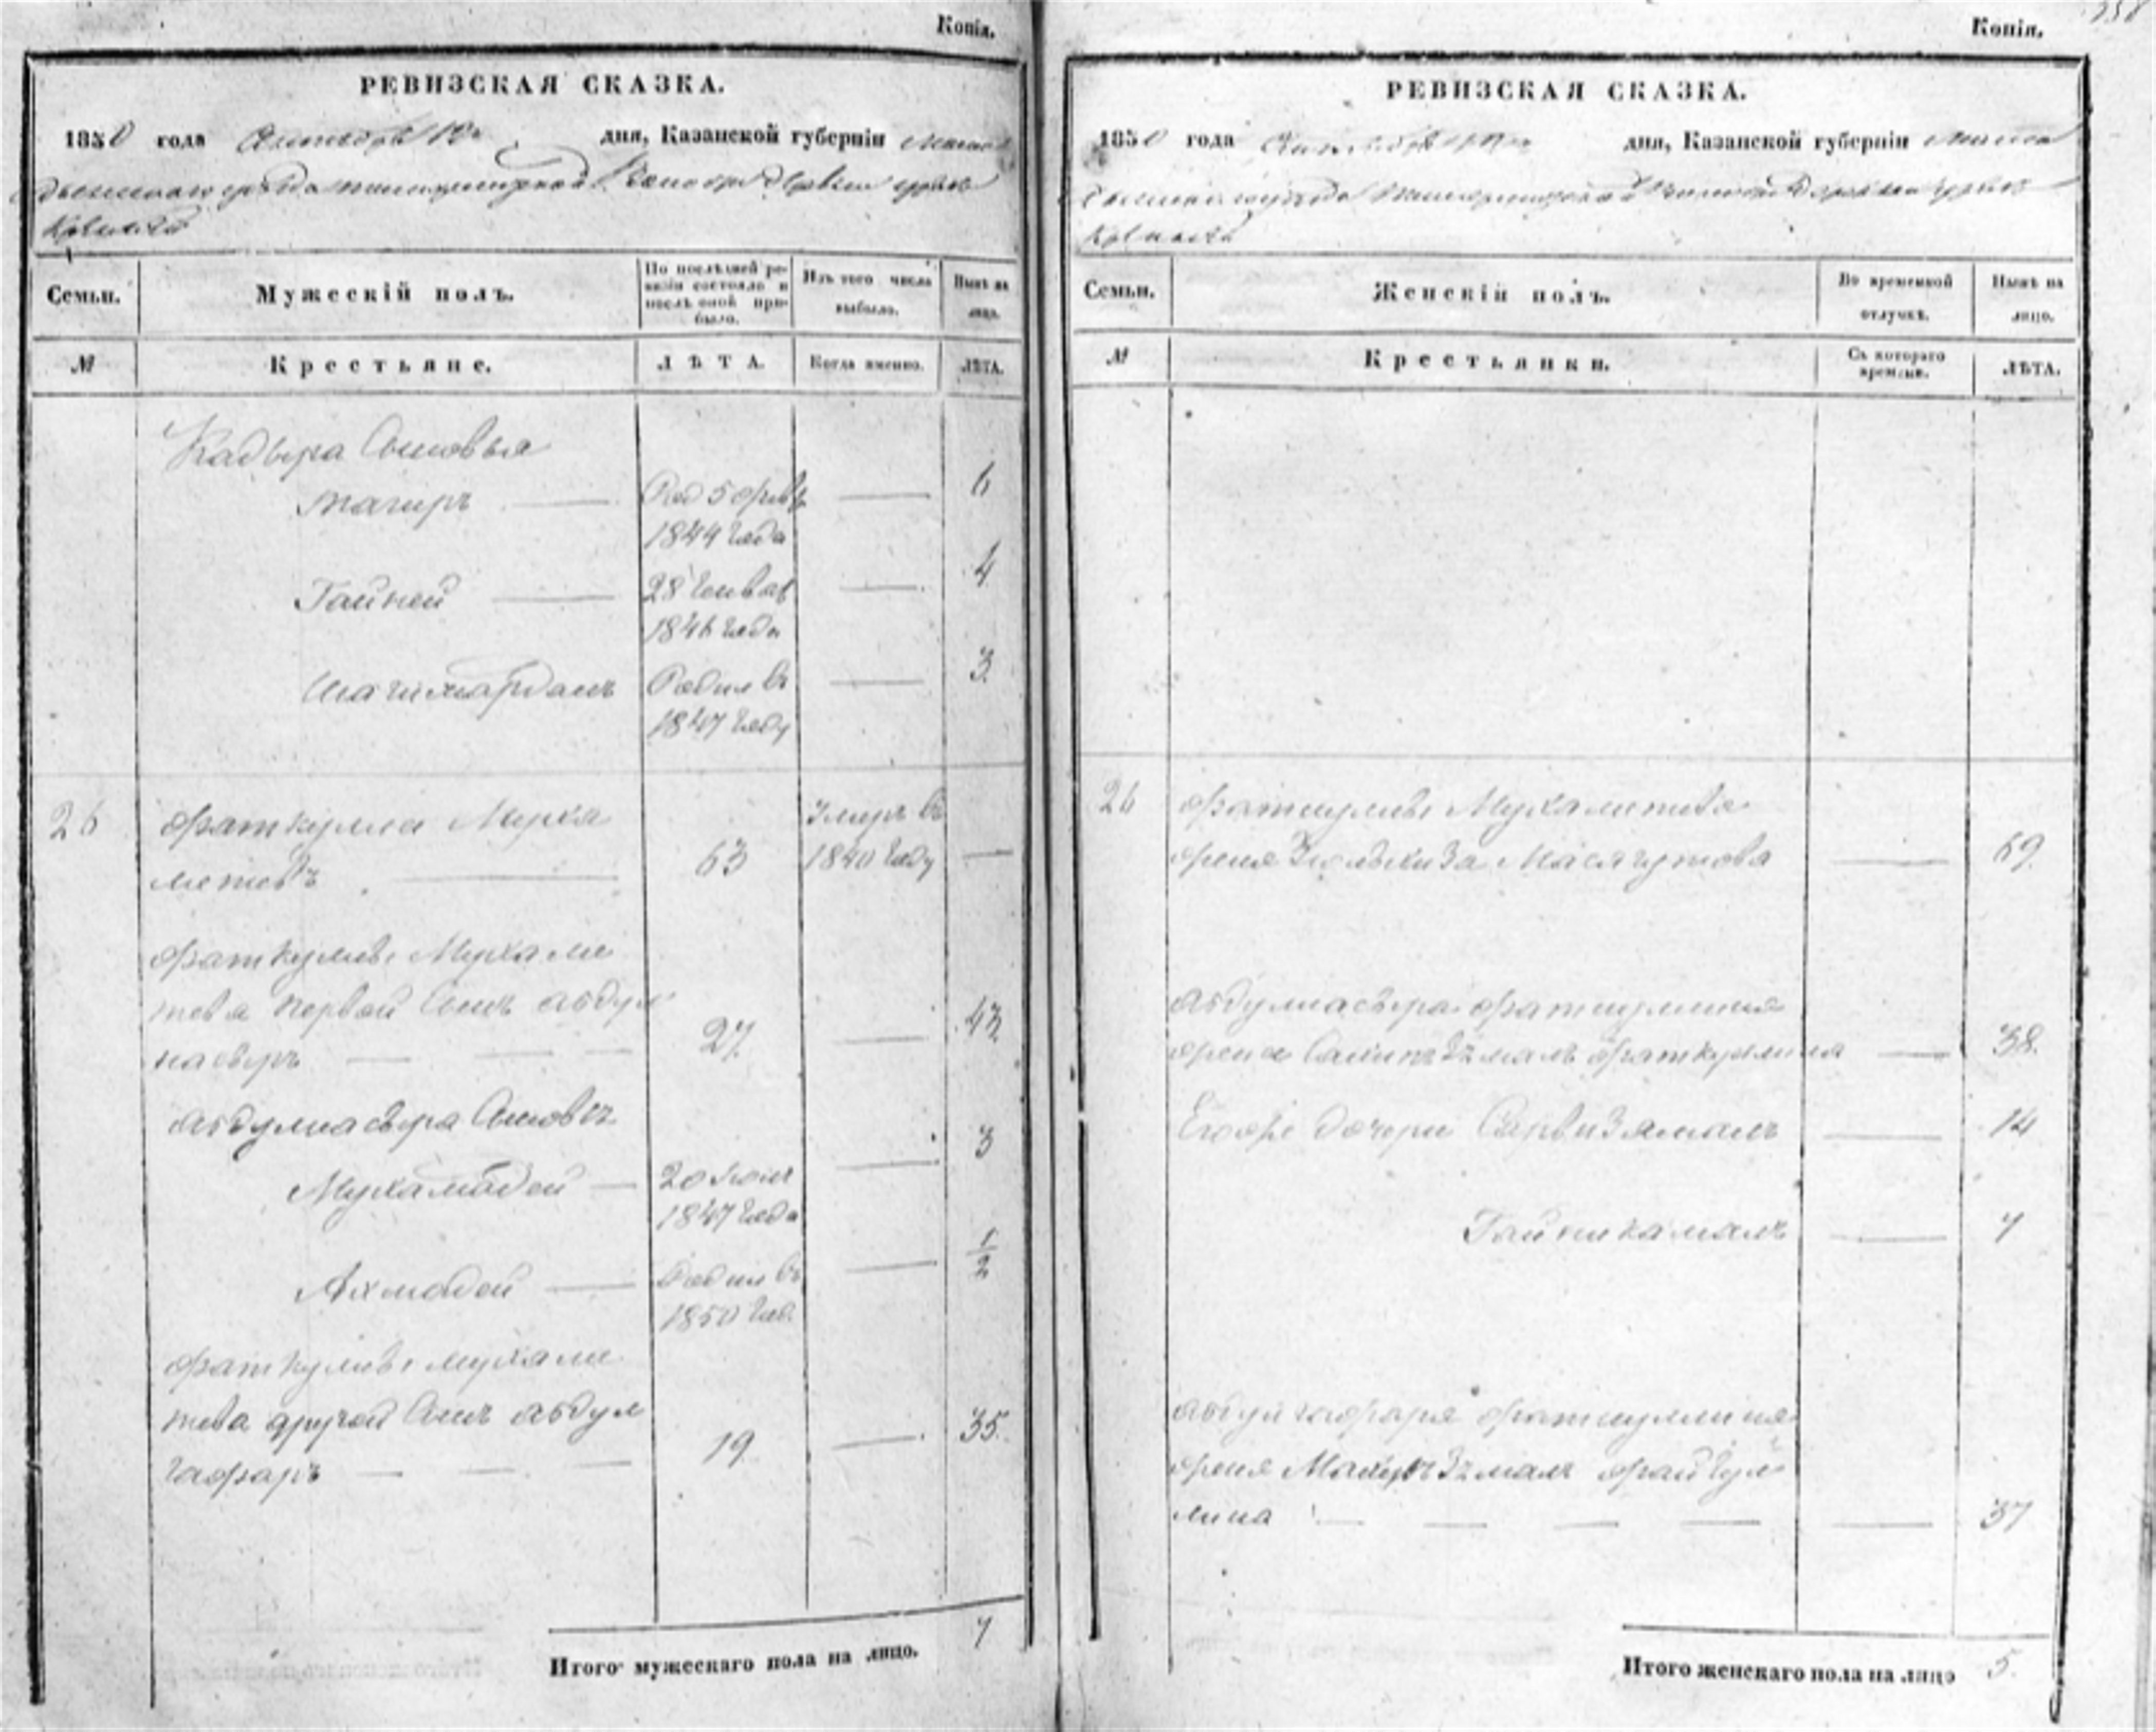 Копія.
РЕВИЗСКАЯ СКАЗКА.
1850 года Октября 10 дня, Казанской губерніи Мама
дышскаго уѣзда волости Деревни
Семьи.
Мужескій полъ.
По послѣдней ре-
визіи состояло и
послѣ оной при-
было.
Изъ того числа
выбыло.
Нынѣ на
лицо.
№
Крестьяне.
ЛѢТА.
Когда именно.
ЛѢТА.
Кадыра Сыновья
Тагиръ — Род 5 февр — 6
1844 года
Гайней — 28 Генвар — 4
1846 года
Шагимарданъ Родил въ — 3
1847 году
26 Фаткулла Муха Умеръ въ
метевъ — 63 1840 году —
Фаткуллы Мухаме
тева первой Сынъ Абдул
насыръ — — — 27 — 42
Абдулнасыра Сыновья
Мухамадей — 20 Июля — 3
1847 года
Ахмадей — Родил въ — 1/2
1850 год.
Фаткуллы Мухаме
тева другой Сынъ Абдул
гафаръ — — — 19. — 35.
Итого мужескаго пола на лицо. 7
Копія.
РЕВИЗСКАЯ СКАЗКА.
1850 года Октября 10 дня, Казанской губерніи Мама
дышскаго уѣзда волости Деревни
Семьи.
Женскій полъ.
Во временной
отлучкѣ.
Нынѣ на
лицо.
№
Крестьянки.
Съ котораго
времени.
ЛѢТА.
26 Фаткуллы Мухаметева
жена Зюльхиза Масягутова — 69.
Абдулнасыра Фаткуллина
жена Фаткуллина — 38.
Егоже дочери Сарвизямалъ — 14
Гайникамалъ — 7
Абдулгафара Фаткуллина
жена
лина — — — — — 37
Итого женскаго пола на лицо 5.